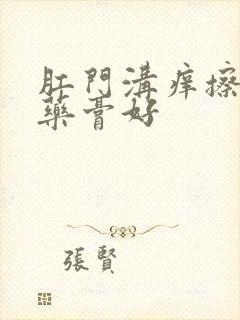 肛門溝痒擦
藥膏好
張賢